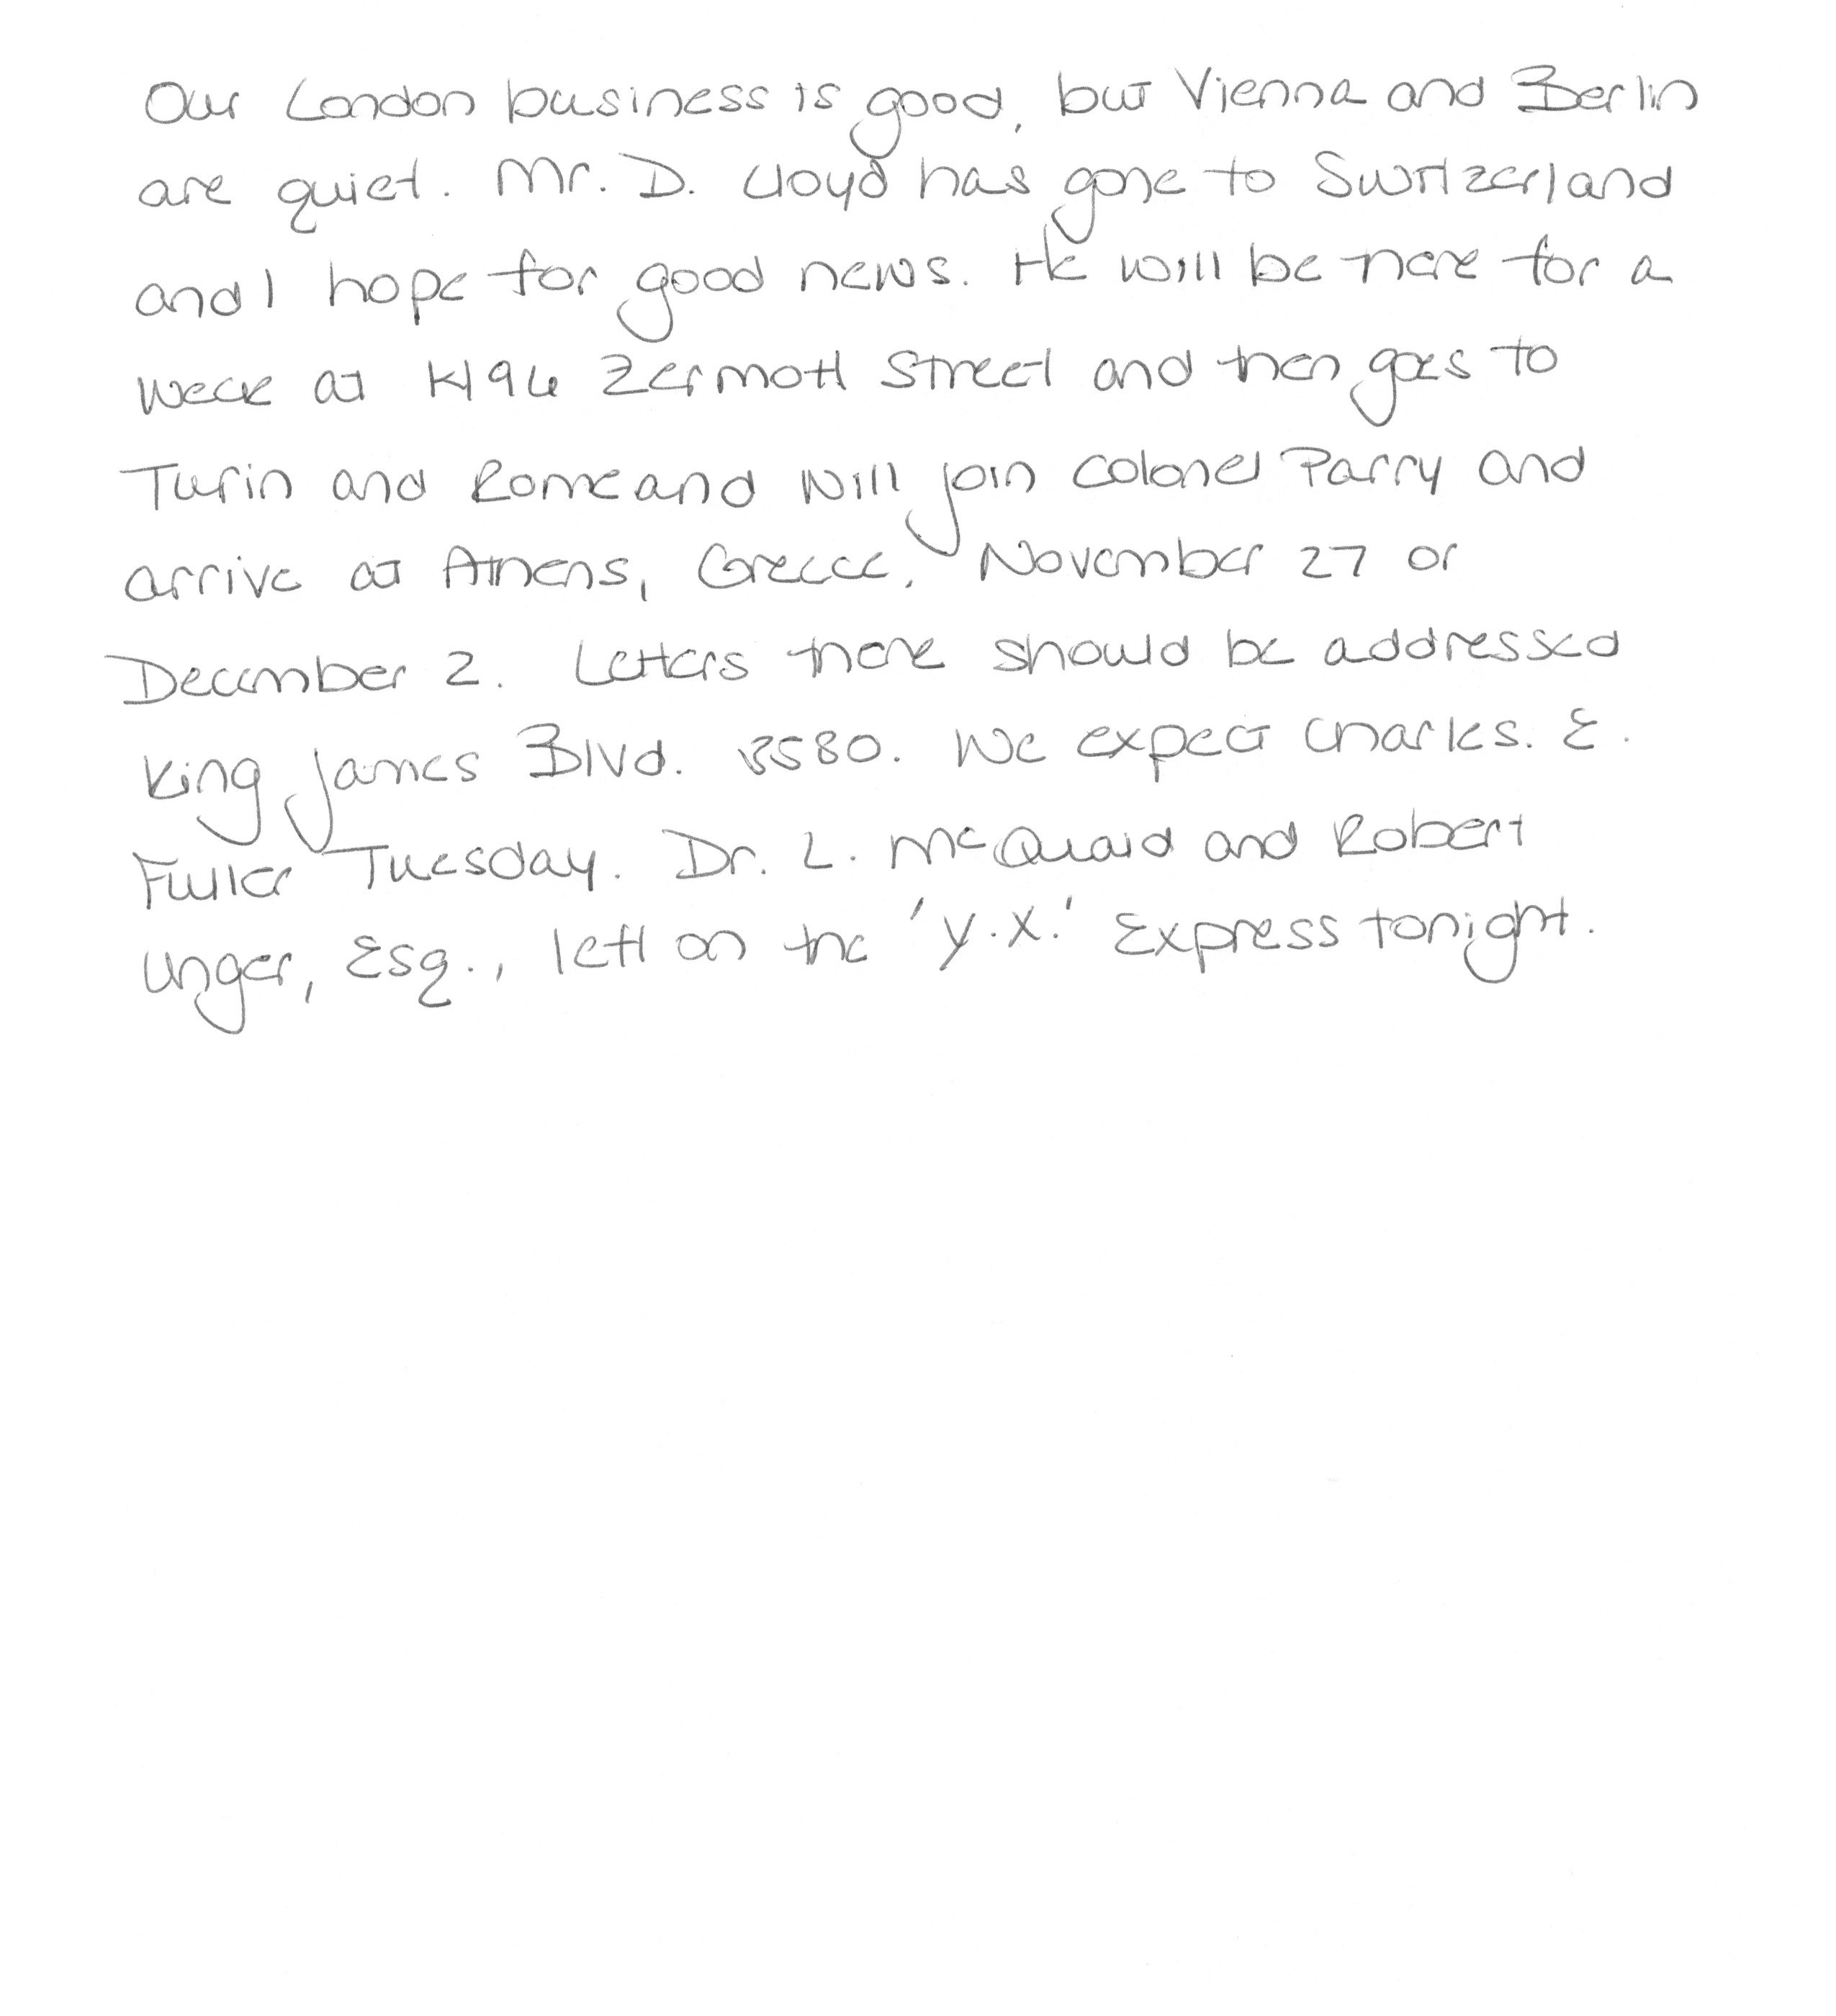 Our London business is good, but Vienna and Berlin
are quiet. Mr. D. Lloyd has gone to Switzerland
and I hope for good news. He will be there for a
week at K196 Zermott Street and then goes to
Turin and Rome and will join Colonel Parry and
arrive at Athens, Greece, November 27 or
December 2. Letters there should be addressed
King James Blvd. 3580. We expect Charles. E.
Fuller Tuesday. Dr. L. McQuaid and Robert
Unger, Esq., left on the 'Y.X.' Express tonight.